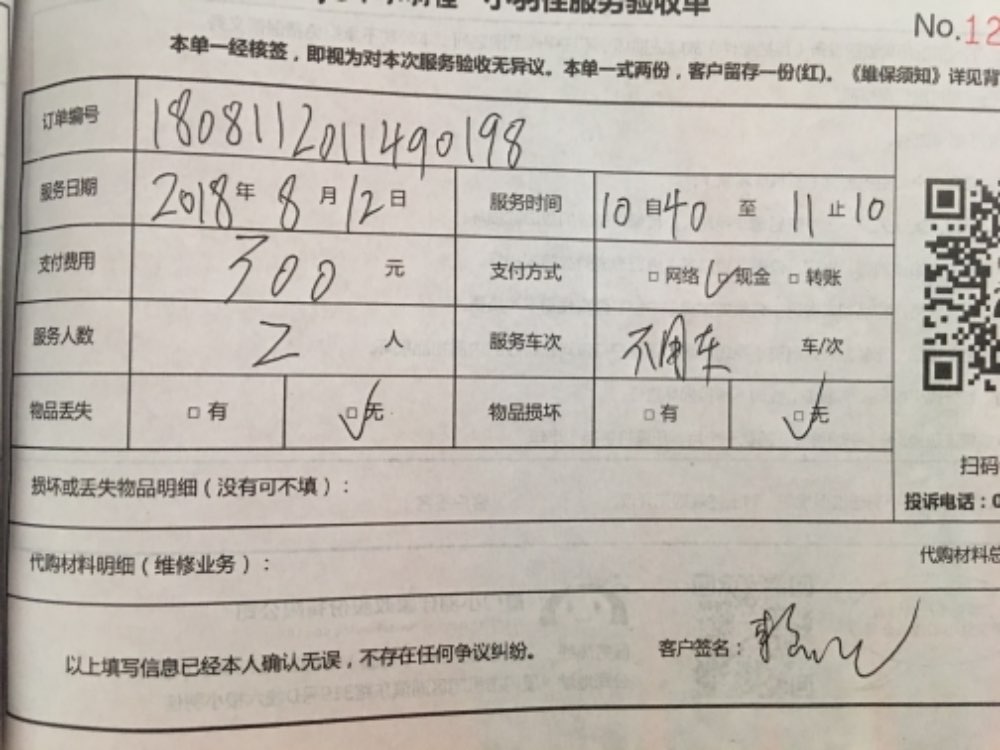 小羽佳服务验收单
No.12
本单一经核签，即视为对本次服务验收无异议。本单一式两份，客户留存一份(红)。《维保须知》详见背
订单编号 18081120111490198
服务日期 2018年8月12日 服务时间 10自40至11止10
支付费用 300元 支付方式 □网络 □现金 □转账
服务人数 2人 服务车次 不用车 车/次
物品丢失 □有 □无 物品损坏 □有 □无
损坏或丢失物品明细（没有可不填）：
扫码
投诉电话：0
代购材料明细（维修业务）：
代购材料总
以上填写信息已经本人确认无误，不存在任何争议纠纷。 客户签名：